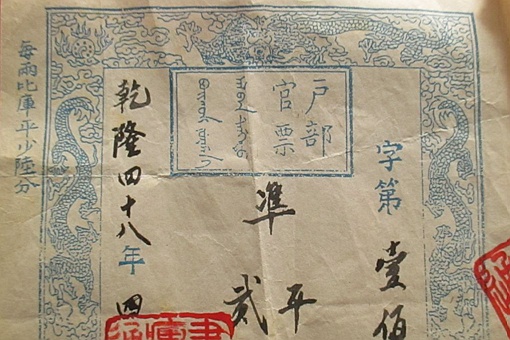 字第壹佰
戶部
官票
準
平
貳
乾隆四十八年四
每兩比庫平少陸分